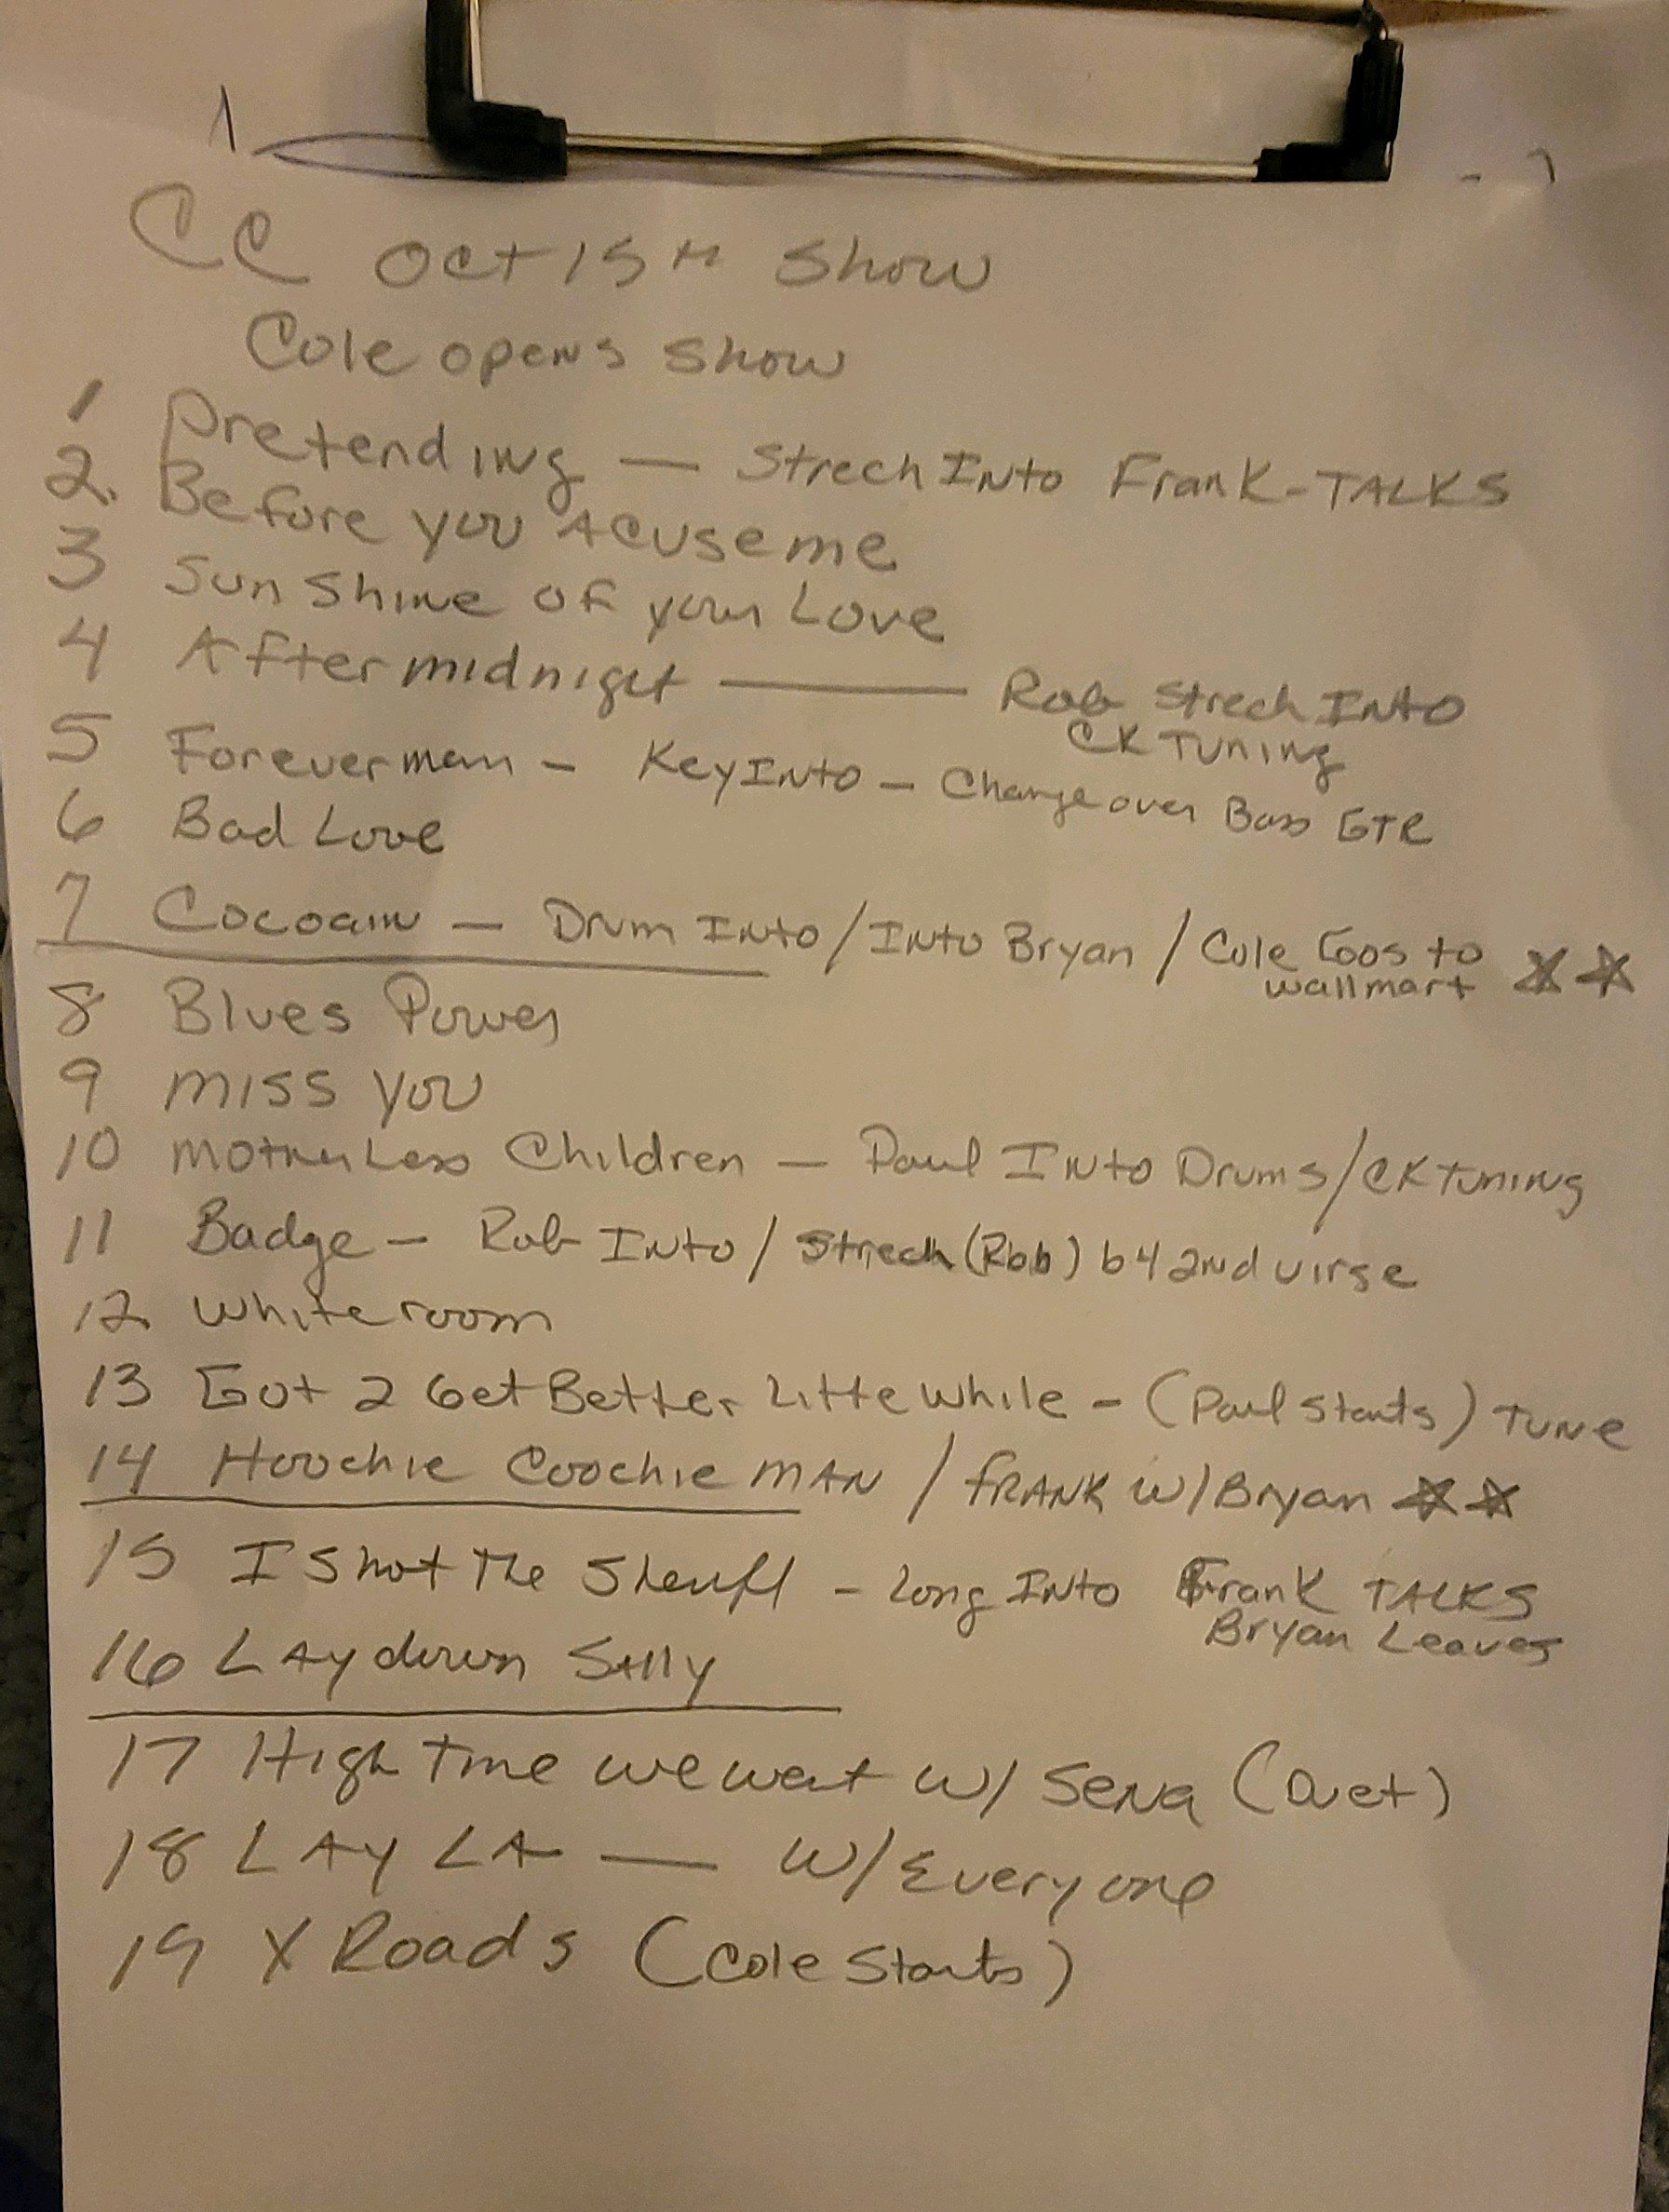 CC Oct 15TH Show
Cole opens show
1 Pretending — Strech Into Frank-TALKS
2. Before you Acuse me
3 Sunshine of your Love
4 After midnight — Rob Strech Into
CK Tuning
5 Forever man - Key Into - Change over Bass GTR
6 Bad Love
7 Cocoain — Drum Into / Into Bryan / Cole Goos to
wallmart ☆☆
8 Blues Power
9 MISS YOU
10 Motherless Children — Paul Into Drums / CK Tuning
11 Badge — Rob Into / Strech (Rob) b4 2nd virse
12 White room
13 Got 2 Get Better Litte While - (Paul Starts) Tune
14 Hoochie Coochie MAN / FRANK W/ Bryan ☆☆
15 I Shot The Sheriff - Long Into Frank TALKS
Bryan Leaves
16 LAy down Sally
17 High Time we went w/ Sena (Duet)
18 LAY LA — W/ Everyone
19 X Roads (Cole Starts)